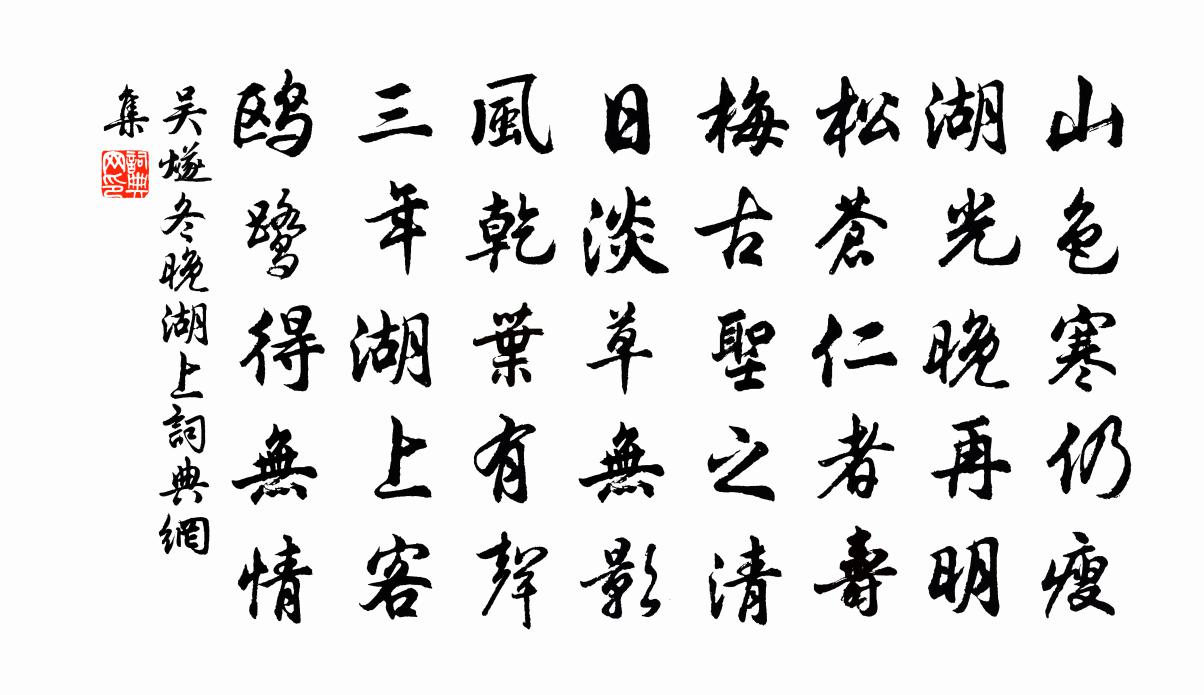 山色寒仍瘦
湖光晚再明
松蒼仁者壽
梅古聖之清
日淡草無影
風乾葉有聲
三年湖上客
鷗鷺得無情
吴燧冬晚湖上詞典網
集
詞典网印